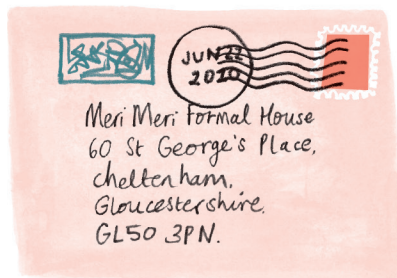 JUN 22
2020
Meri Meri Formal House
60 St George's Place,
Cheltenham,
Gloucestershire.
GL50 3PN.